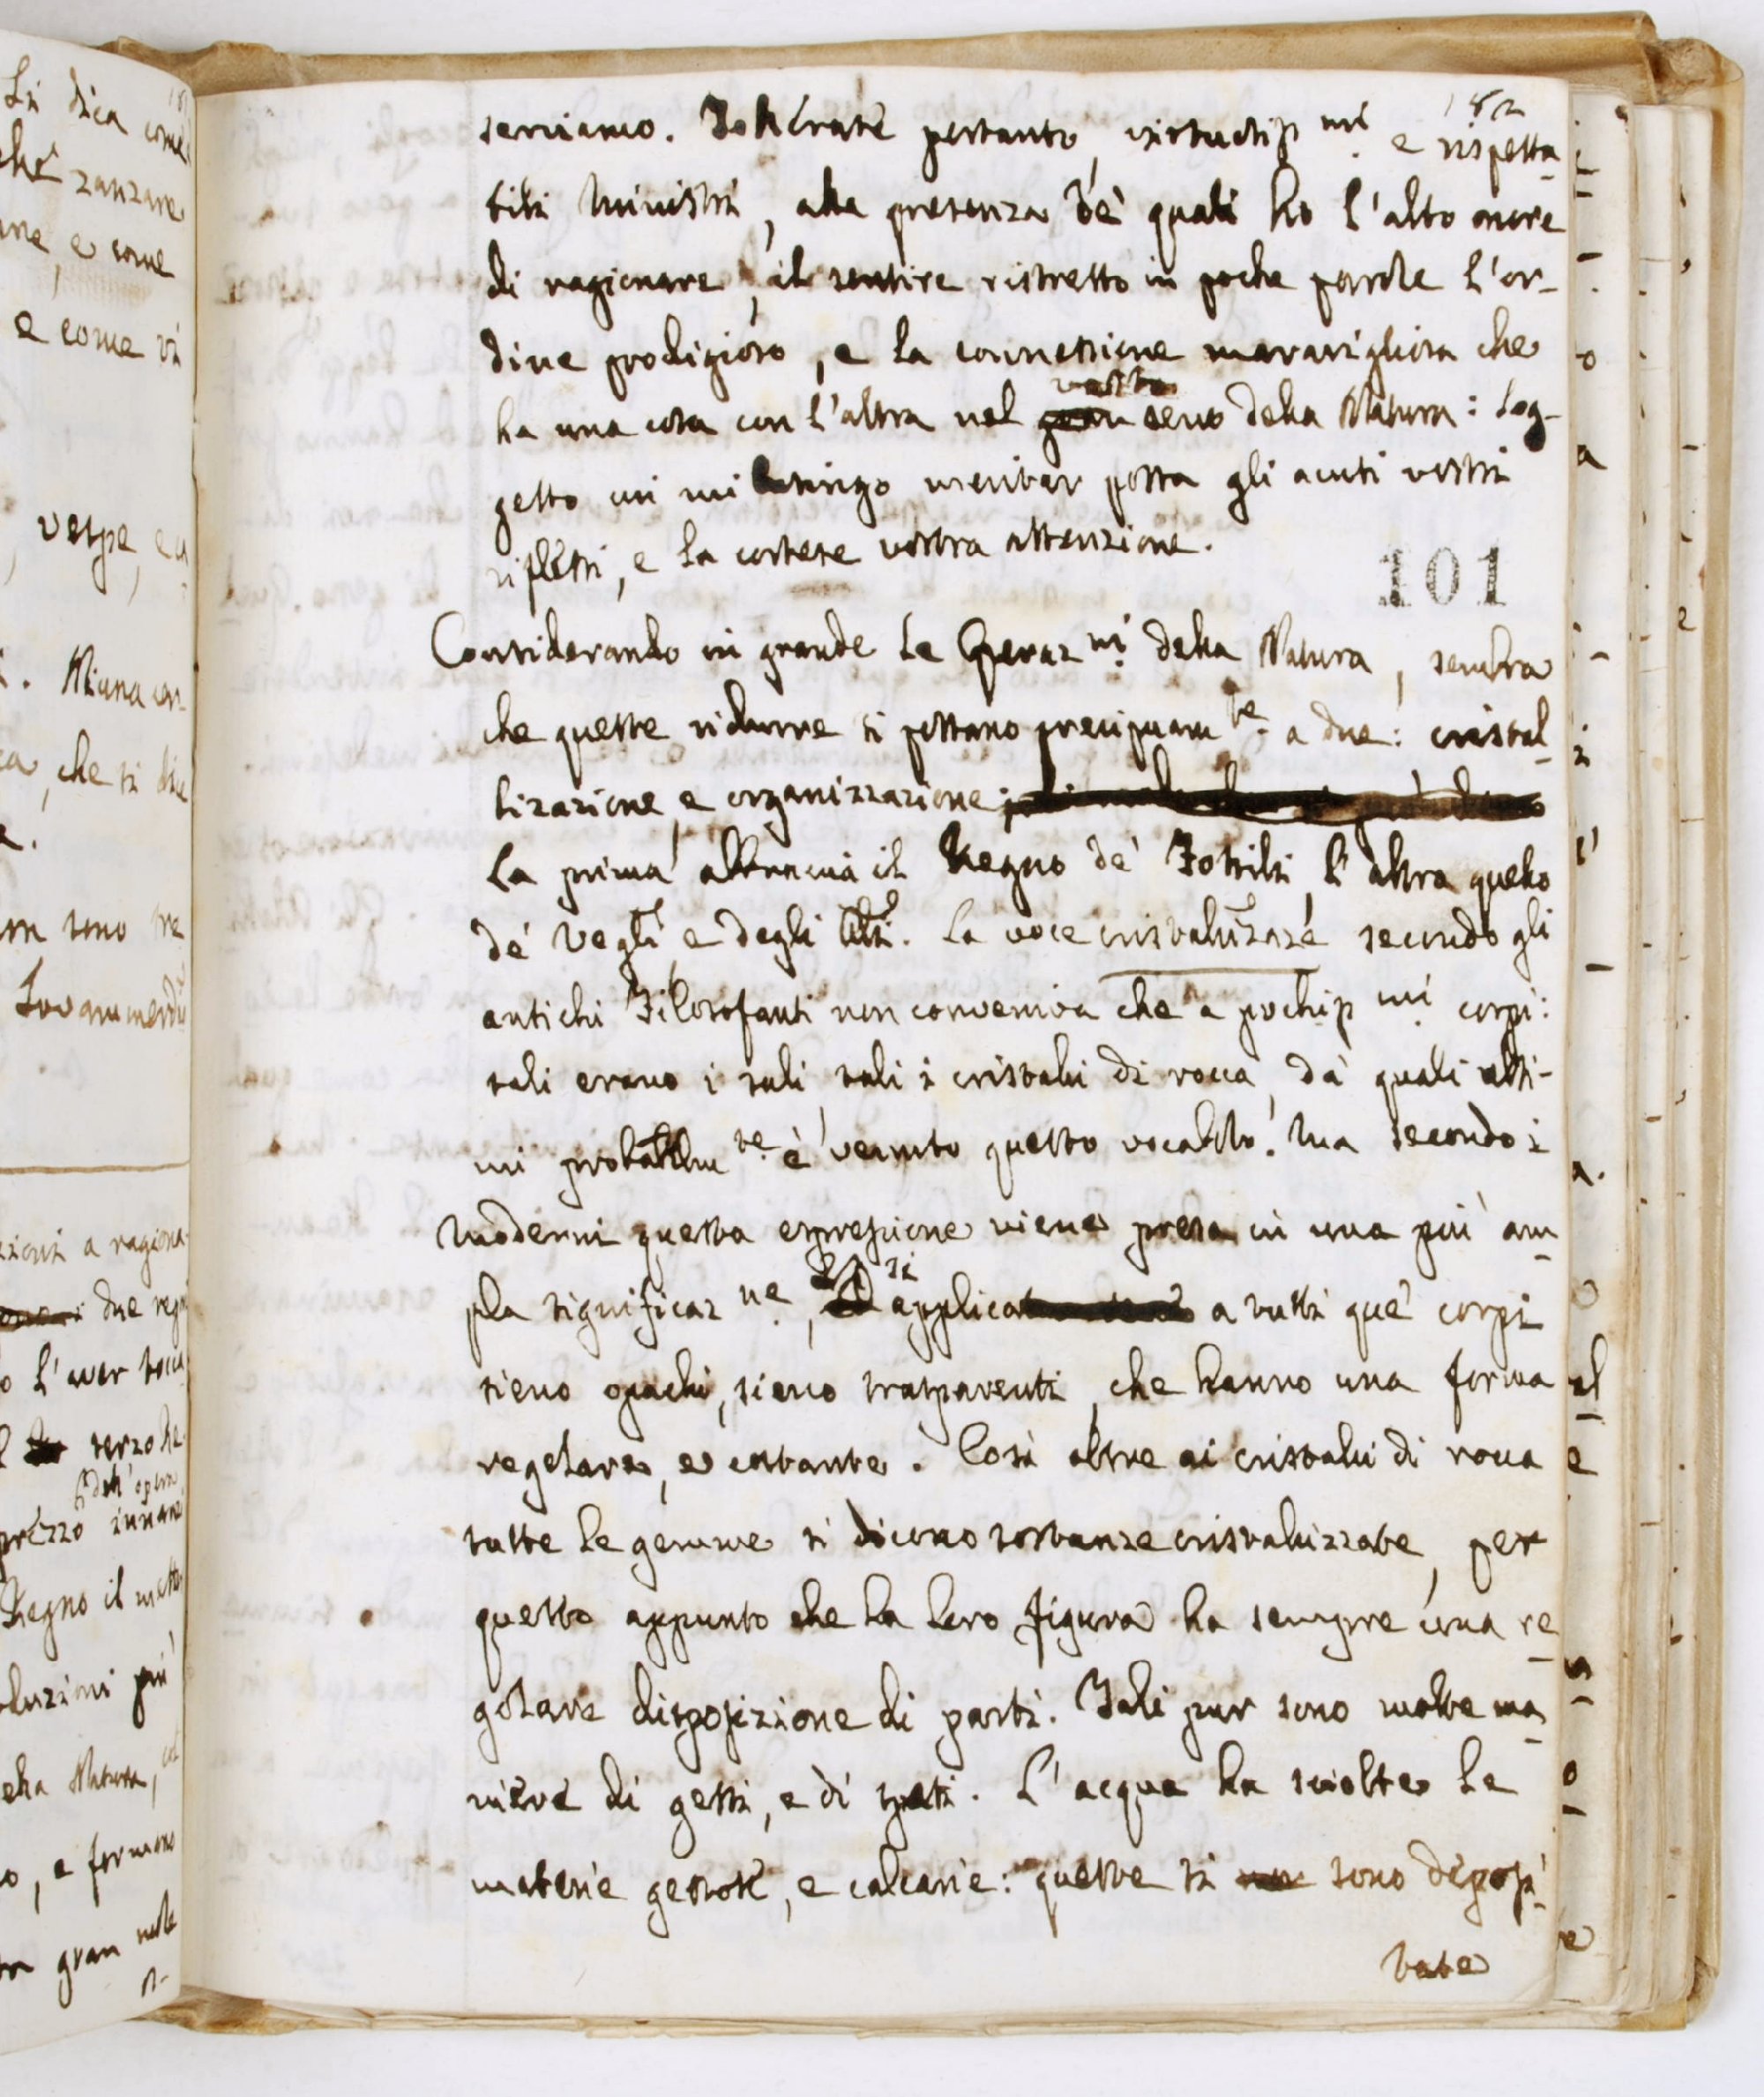 182
serviamo. Tollerate pertanto, virtuosiss.mi e rispetta
bili Ministri, alla presenza de' quali ho l'alto onore
di ragionare, il sentire ristretto in poche parole l'or-
dine prodigioso, e la connessione maravigliosa che
vasto
ha una cosa con l'altra nel gran seno della Natura: Sog-
getto cui mi lusingo meritar possa gli acuti vostri
riflessi, e la cortese vostra attenzione.
101
Considerando in grande le Operaz.ni della Natura, sembra
che queste ridurre si possano precipuam.te a due: cristal
lizazione, e organizzazione:
La prima abbraccia il Regno de' Fossili, l'altra quello
de' Vegli e degli Ali. La voce cristallizzare secondo gli
antichi Filosofanti non conveniva che a pochiss.mi corpi:
tali erano i sali, tali i cristalli di rocca, da' quali ulti-
mi probabilm.te è venuto questo vocabolo. Ma secondo i
Moderni questa espressione viene presa in una più am
si
pla significaz.ne, ed applica a tutti que' corpi
sieno opachi, sieno trasparenti, che hanno una forma
regolare, e costante. Così oltre ai cristalli di rocca
tutte le gemme si dicono sostanze cristallizzate, per
questo appunto che la loro figura ha sempre una re
golare disposizione di parti. Tali pur sono molte ma
niere di gessi, e di spati. L'acqua ha sciolte le
materie gessose, e calcarie: queste si sono deposi
tate
Si dica come
che zanzare
e come
e come vi
vespe,
Niuna
che si dice
sono tre
a ragiona
due regni
terzo Re
dell'opera
prezzo
Regno il
più
ella Natura,
o, e formano
gran